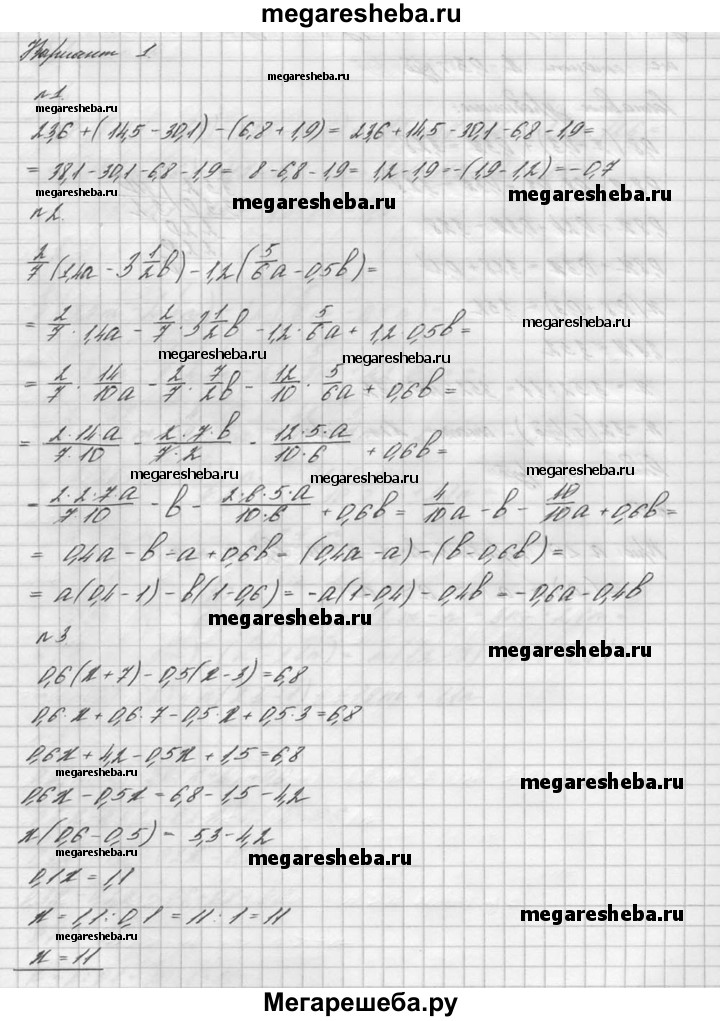 megaresheba.ru
Вариант 1
megaresheba.ru
№1.
megaresheba.ru
23,6 + (14,5 - 30,1) - (6,8 + 1,9) = 23,6 + 14,5 - 30,1 - 6,8 - 1,9 =
= 38,1 - 30,1 - 6,8 - 1,9 = 8 - 6,8 - 1,9 = 1,2 - 1,9 = -(1,9 - 1,2) = -0,7
megaresheba.ru megaresheba.ru megaresheba.ru
№2.
2/7 (1,4a - 3 1/2 b) - 1,2 (5/6 a - 0,5b) =
= 2/7 · 1,4a - 2/7 · 3 1/2 b - 1,2 · 5/6 a + 1,2 · 0,5b =
megaresheba.ru
megaresheba.ru megaresheba.ru
= 2/7 · 14/10 a - 2/7 · 7/2 b - 12/10 · 5/6 a + 0,6b =
= 2·14·a/7·10 - 2·7·b/7·2 - 12·5·a/10·6 + 0,6b =
megaresheba.ru megaresheba.ru megaresheba.ru
= 2·2·7·a/7·10 - b - 2·6·5·a/10·6 + 0,6b = 4/10 a - b - 10/10 a + 0,6b =
= 0,4a - b - a + 0,6b = (0,4a - a) - (b - 0,6b) =
= a(0,4 - 1) - b(1 - 0,6) = -a(1 - 0,4) - 0,4b = -0,6a - 0,4b
megaresheba.ru
№3
megaresheba.ru
0,6(x + 7) - 0,5(x - 3) = 6,8
0,6 · x + 0,6 · 7 - 0,5 · x + 0,5 · 3 = 6,8
0,6x + 4,2 - 0,5x + 1,5 = 6,8
megaresheba.ru
megaresheba.ru
0,6x - 0,5x = 6,8 - 1,5 - 4,2
x(0,6 - 0,5) = 5,3 - 4,2
megaresheba.ru
megaresheba.ru
0,1x = 1,1
x = 1,1 : 0,1 = 11 : 1 = 11
megaresheba.ru
megaresheba.ru
x = 11
Мегарешеба.ру